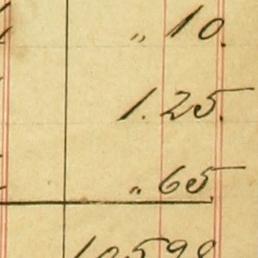 „ 10.
1.25.
„ 65
10598